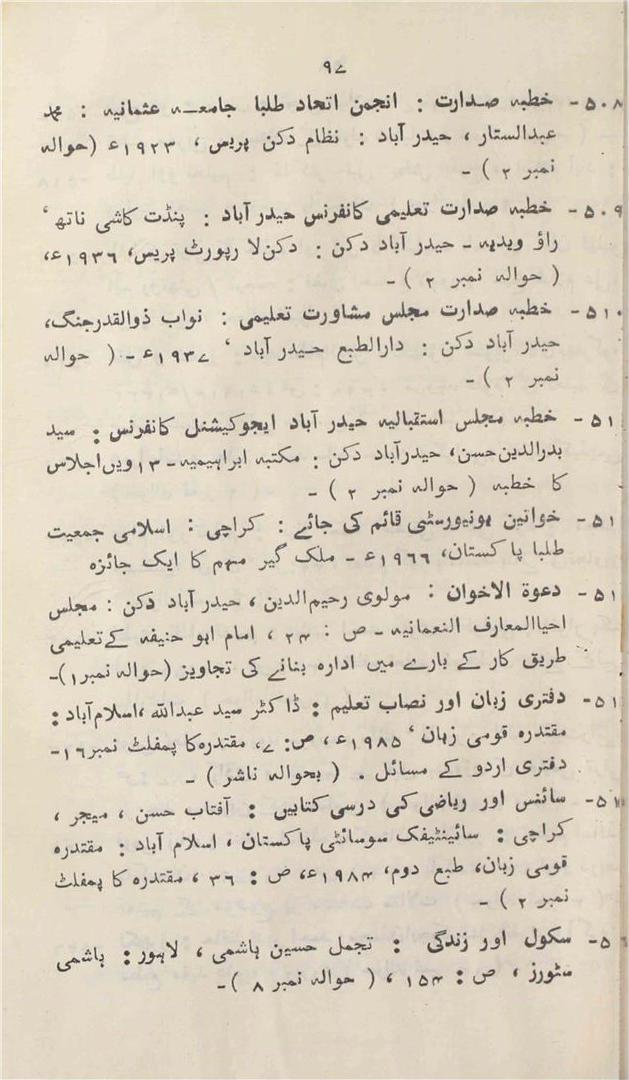 ۹۷
۵۰۸- خطبہ صدارت : انجمن اتحاد طلبا جامعہ عثمانیہ : محمد
عبدالستار ، حیدر آباد : نظام دکن پریس ، ۱۹۲۳ء (حوالہ
نمبر ۲ ) -
۵۰۹- خطبہ صدارت تعلیمی کانفرنس حیدر آباد : پنڈت کاشی ناتھ ،
راؤ ویدیہ - حیدر آباد دکن : دکن لا رپورٹ پریس، ۱۹۳۶ء،
( حوالہ نمبر ۲ ) -
۵۱۰- خطبہ صدارت مجلس مشاورت تعلیمی : نواب ذوالقدرجنگ،
حیدر آباد دکن : دارالطبع حیدر آباد ، ۱۹۳۷ء - ( حوالہ
نمبر ۲ ) -
۵۱- خطبہ مجلس استقبالیہ حیدر آباد ایجوکیشنل کانفرنس : سید
بدرالدین حسن، حیدرآباد دکن : مکتبہ ابراہیمیہ - ۱۳ ویں اجلاس
کا خطبہ ( حوالہ نمبر ۲ ) -
۵۱- خواتین یونیورسٹی قائم کی جائے : کراچی : اسلامی جمعیت
طلبا پاکستان، ۱۹۶۶ء - ملک گیر مہم کا ایک جائزہ
۵۱- دعوۃ الاخوان : مولوی رحیم الدین ، حیدر آباد دکن : مجلس
احیاالمعارف النعمانیہ - ص : ۲۴ ، امام ابو حنیفہ کے تعلیمی
طریق کار کے بارے میں ادارہ بنانے کی تجاویز (حوالہ نمبر ۱)-
۵۱- دفتری زبان اور نصاب تعلیم : ڈاکٹر سید عبداللہ ،اسلام آباد :
مقتدرہ قومی زبان ، ۱۹۸۵ء ، ص: ۷، مقتدرہ کا پمفلٹ نمبر ۱۶-
دفتری اردو کے مسائل . ( بحوالہ ناشر ) -
۵۱- سائنس اور ریاضی کی درسی کتابیں : آفتاب حسن ، میجر ،
کراچی : سائینٹیفک سوسائٹی پاکستان ، اسلام آباد : مقتدرہ
قومی زبان، طبع دوم، ۱۹۸۴ء، ص : ۳۶ ، مقتدرہ کا پمفلٹ
نمبر ۲ ) -
۵- سکول اور زندگی : تجمل حسین ہاشمی ، لاہور : ہاشمی
سٹورز ، ص : ۱۵۴ ، ( حوالہ نمبر ۸ ) -